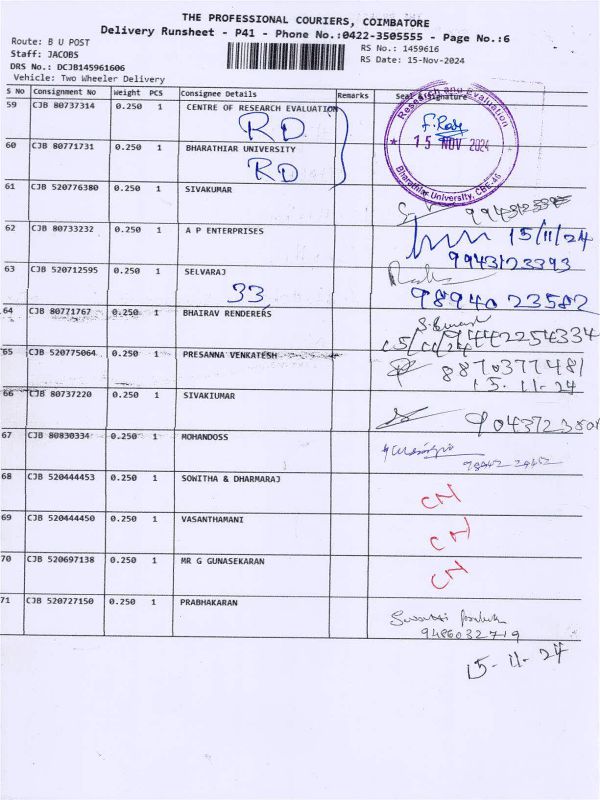 THE PROFESSIONAL COURIERS, COIMBATORE
Delivery Runsheet - P41 - Phone No.:0422-3505555 - Page No.:6
Route: B U POST
Staff: JACOBS
DRS No.: DCJB145961606
Vehicle: Two Wheeler Delivery
RS No.: 1459616
RS Date: 15-Nov-2024
S No Consignment No Weight PCS Consignee Details Remarks Seal & Signature
59 CJB 80737314 0.250 1 CENTRE OF RESEARCH EVALUATION
RD
60 CJB 80771731 0.250 1 BHARATHIAR UNIVERSITY
RD
Research and Evaluation
15 NOV 2024
Bharathiar University, CBE-46
61 CJB 520776380 0.250 1 SIVAKUMAR
62 CJB 80733232 0.250 1 A P ENTERPRISES
15/11/24
9943123393
63 CJB 520712595 0.250 1 SELVARAJ
33
98940 23582
64 CJB 80771767 0.250 1 BHAIRAV RENDERERS
15/11/24 9442254334
65 CJB 520775064 0.250 1 PRESANNA VENKATESH
8870377481
15-11-24
66 CJB 80737220 0.250 1 SIVAKIUMAR
67 CJB 80830334 0.250 1 MOHANDOSS
68 CJB 520444453 0.250 1 SOWITHA & DHARMARAJ
CN
69 CJB 520444450 0.250 1 VASANTHAMANI
CN
70 CJB 520697138 0.250 1 MR G GUNASEKARAN
CN
71 CJB 520727150 0.250 1 PRABHAKARAN
9486032719
15-11-24